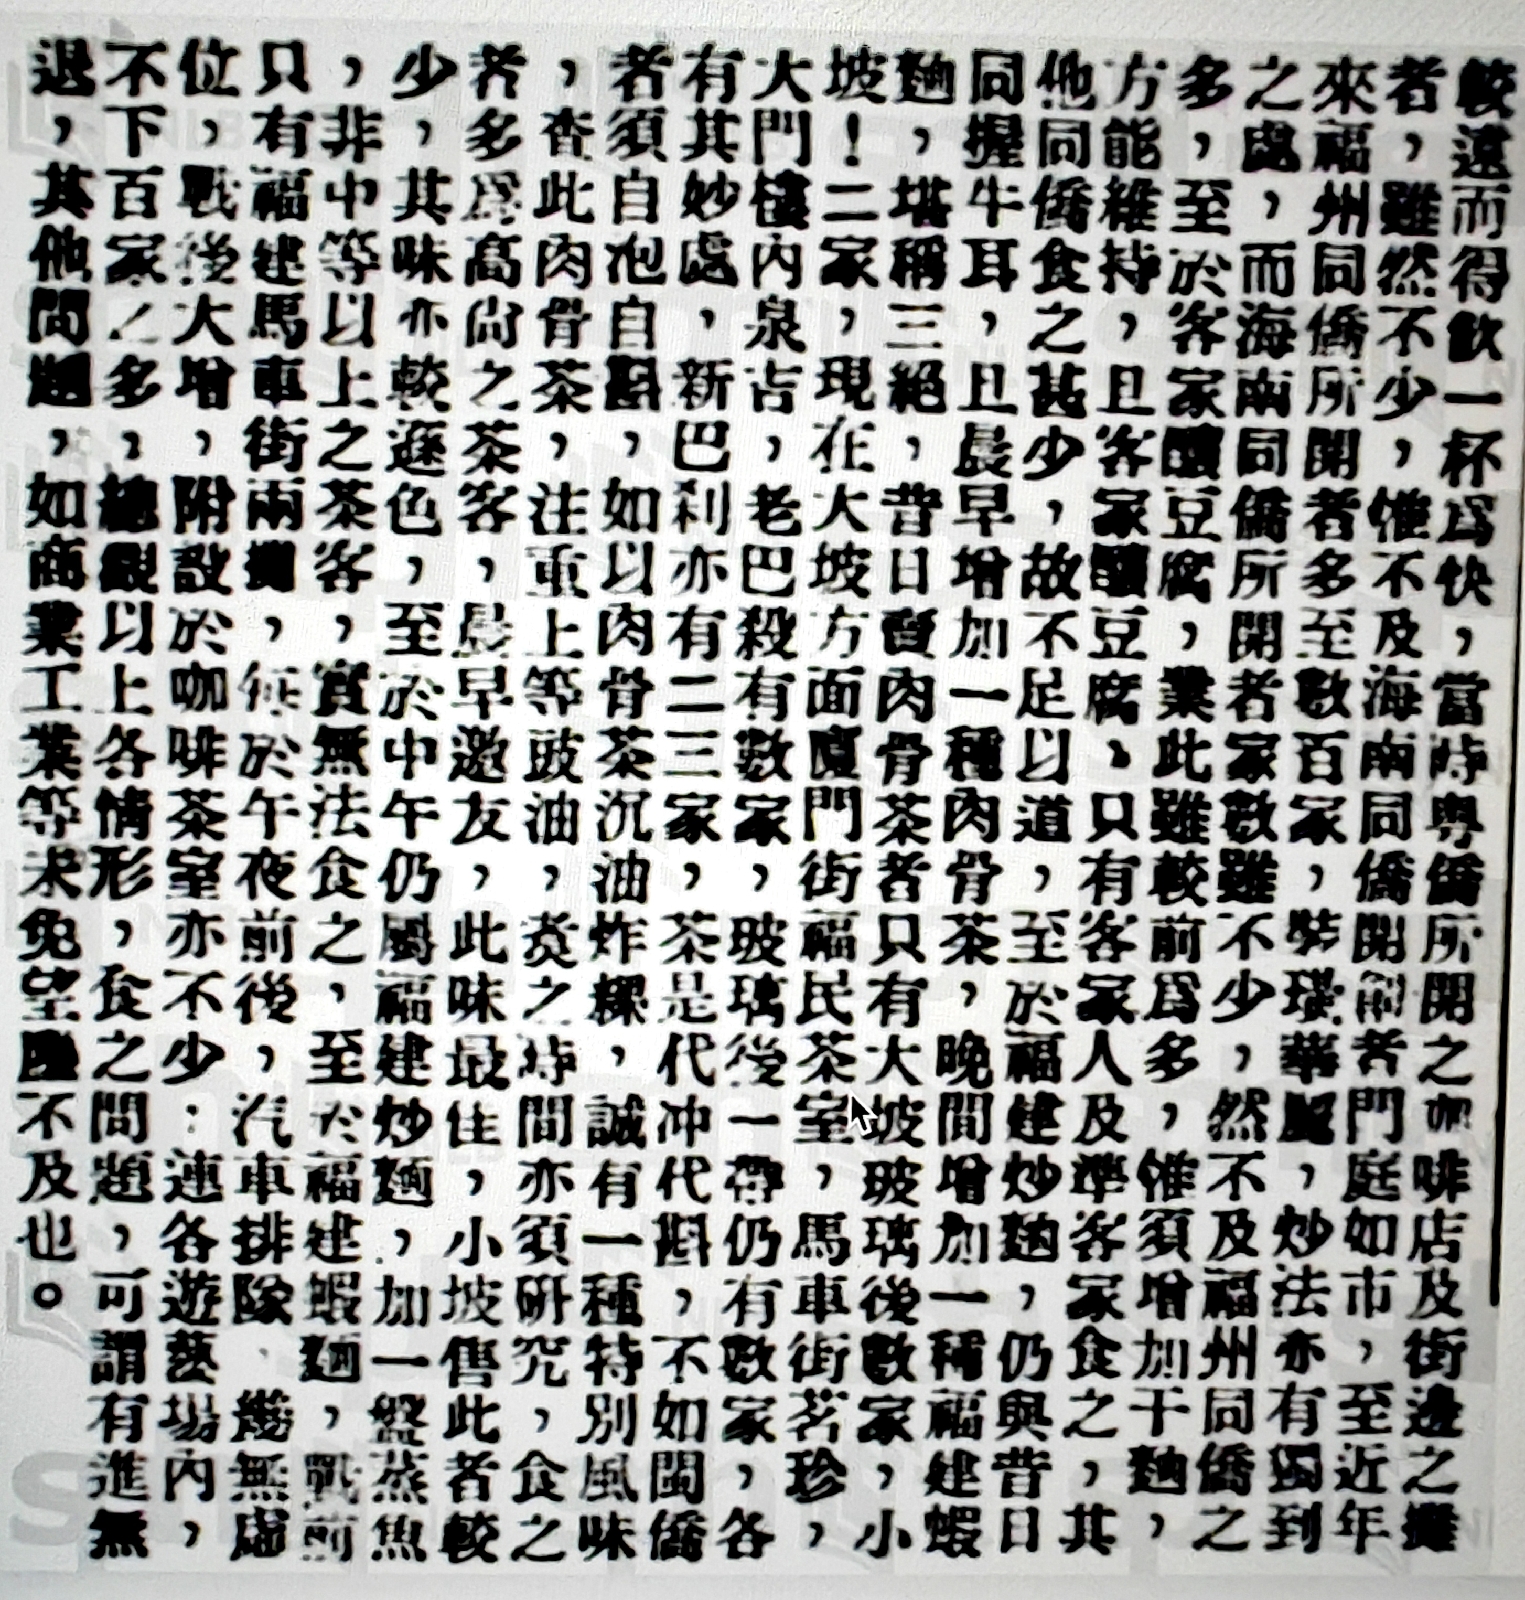 較遠而得飲一杯爲快，當時粵僑所開之咖啡店及街邊之攤
者，雖然不少，惟不及海南同僑開創者門庭如市，至近年
來福州同僑所開者多至數百家，裝璜華麗，炒法亦有獨到
之處，而海南同僑所開者數家雖不少，然不及福州同僑之
多，至於客家釀豆腐，業此雖較前爲多，惟須增加干麵，
方能維持，且客家釀豆腐、只有客家人及準客家食之，其
他同僑食之甚少，故不足道，至於福建炒麵，仍與昔日
同握牛耳，且晨早增加一種肉骨茶，晚間增加一種福建蝦
麵，堪稱三絕，昔日賣肉骨茶者只有大坡玻璃後數家，小
坡！二家，現在大坡方面廈門街福民茶室，馬車街茗珍，
大門樓內泉吉，老巴殺有數家，玻璃後一帶仍有數家，各
有其妙處，新巴刹亦有二三家，茶是代冲代斟，不如閩僑
者須自泡自斟，如以肉骨茶沉油炸粿，誠有一種特別風味
，查此肉骨茶，注重上等豉油，煑之時間亦須研究，食之
者多爲高尙之茶客，晨早邀友，此味最佳，小坡售此者較
少，其味亦較遜色，至於中午仍屬福建炒麵，加一盤蒸魚
，非中等以上之茶客，實無法食之，至於福建蝦麵，戰前
只有福建馬車街兩攤，候於午夜前後，汽車排隊、幾無虛
位，戰後大增，附設於咖啡茶室亦不少：連各遊藝場內，
不下百家之多，總觀以上各情形，食之問題，可謂有進無
退，其他問題，如商業工業等未免望塵不及也。